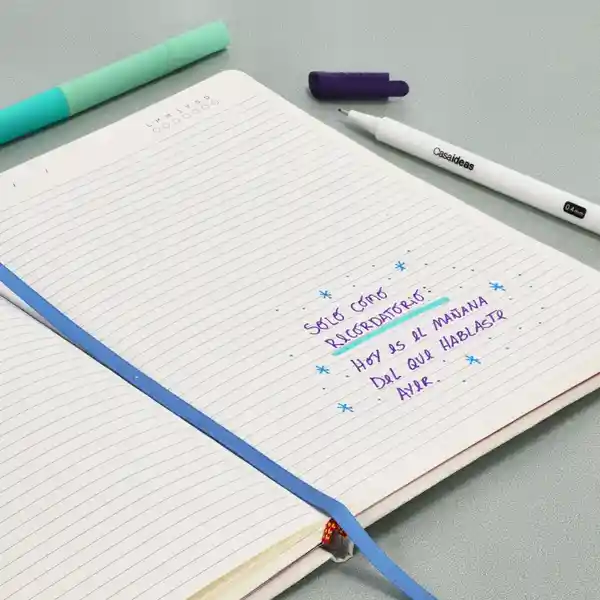 L M M J V S D
CasaIdeas
0.4mm
SOLO COMO
RECORDATORIO:
HOY ES EL MAÑANA
DEL QUE HABLASTE
AYER.